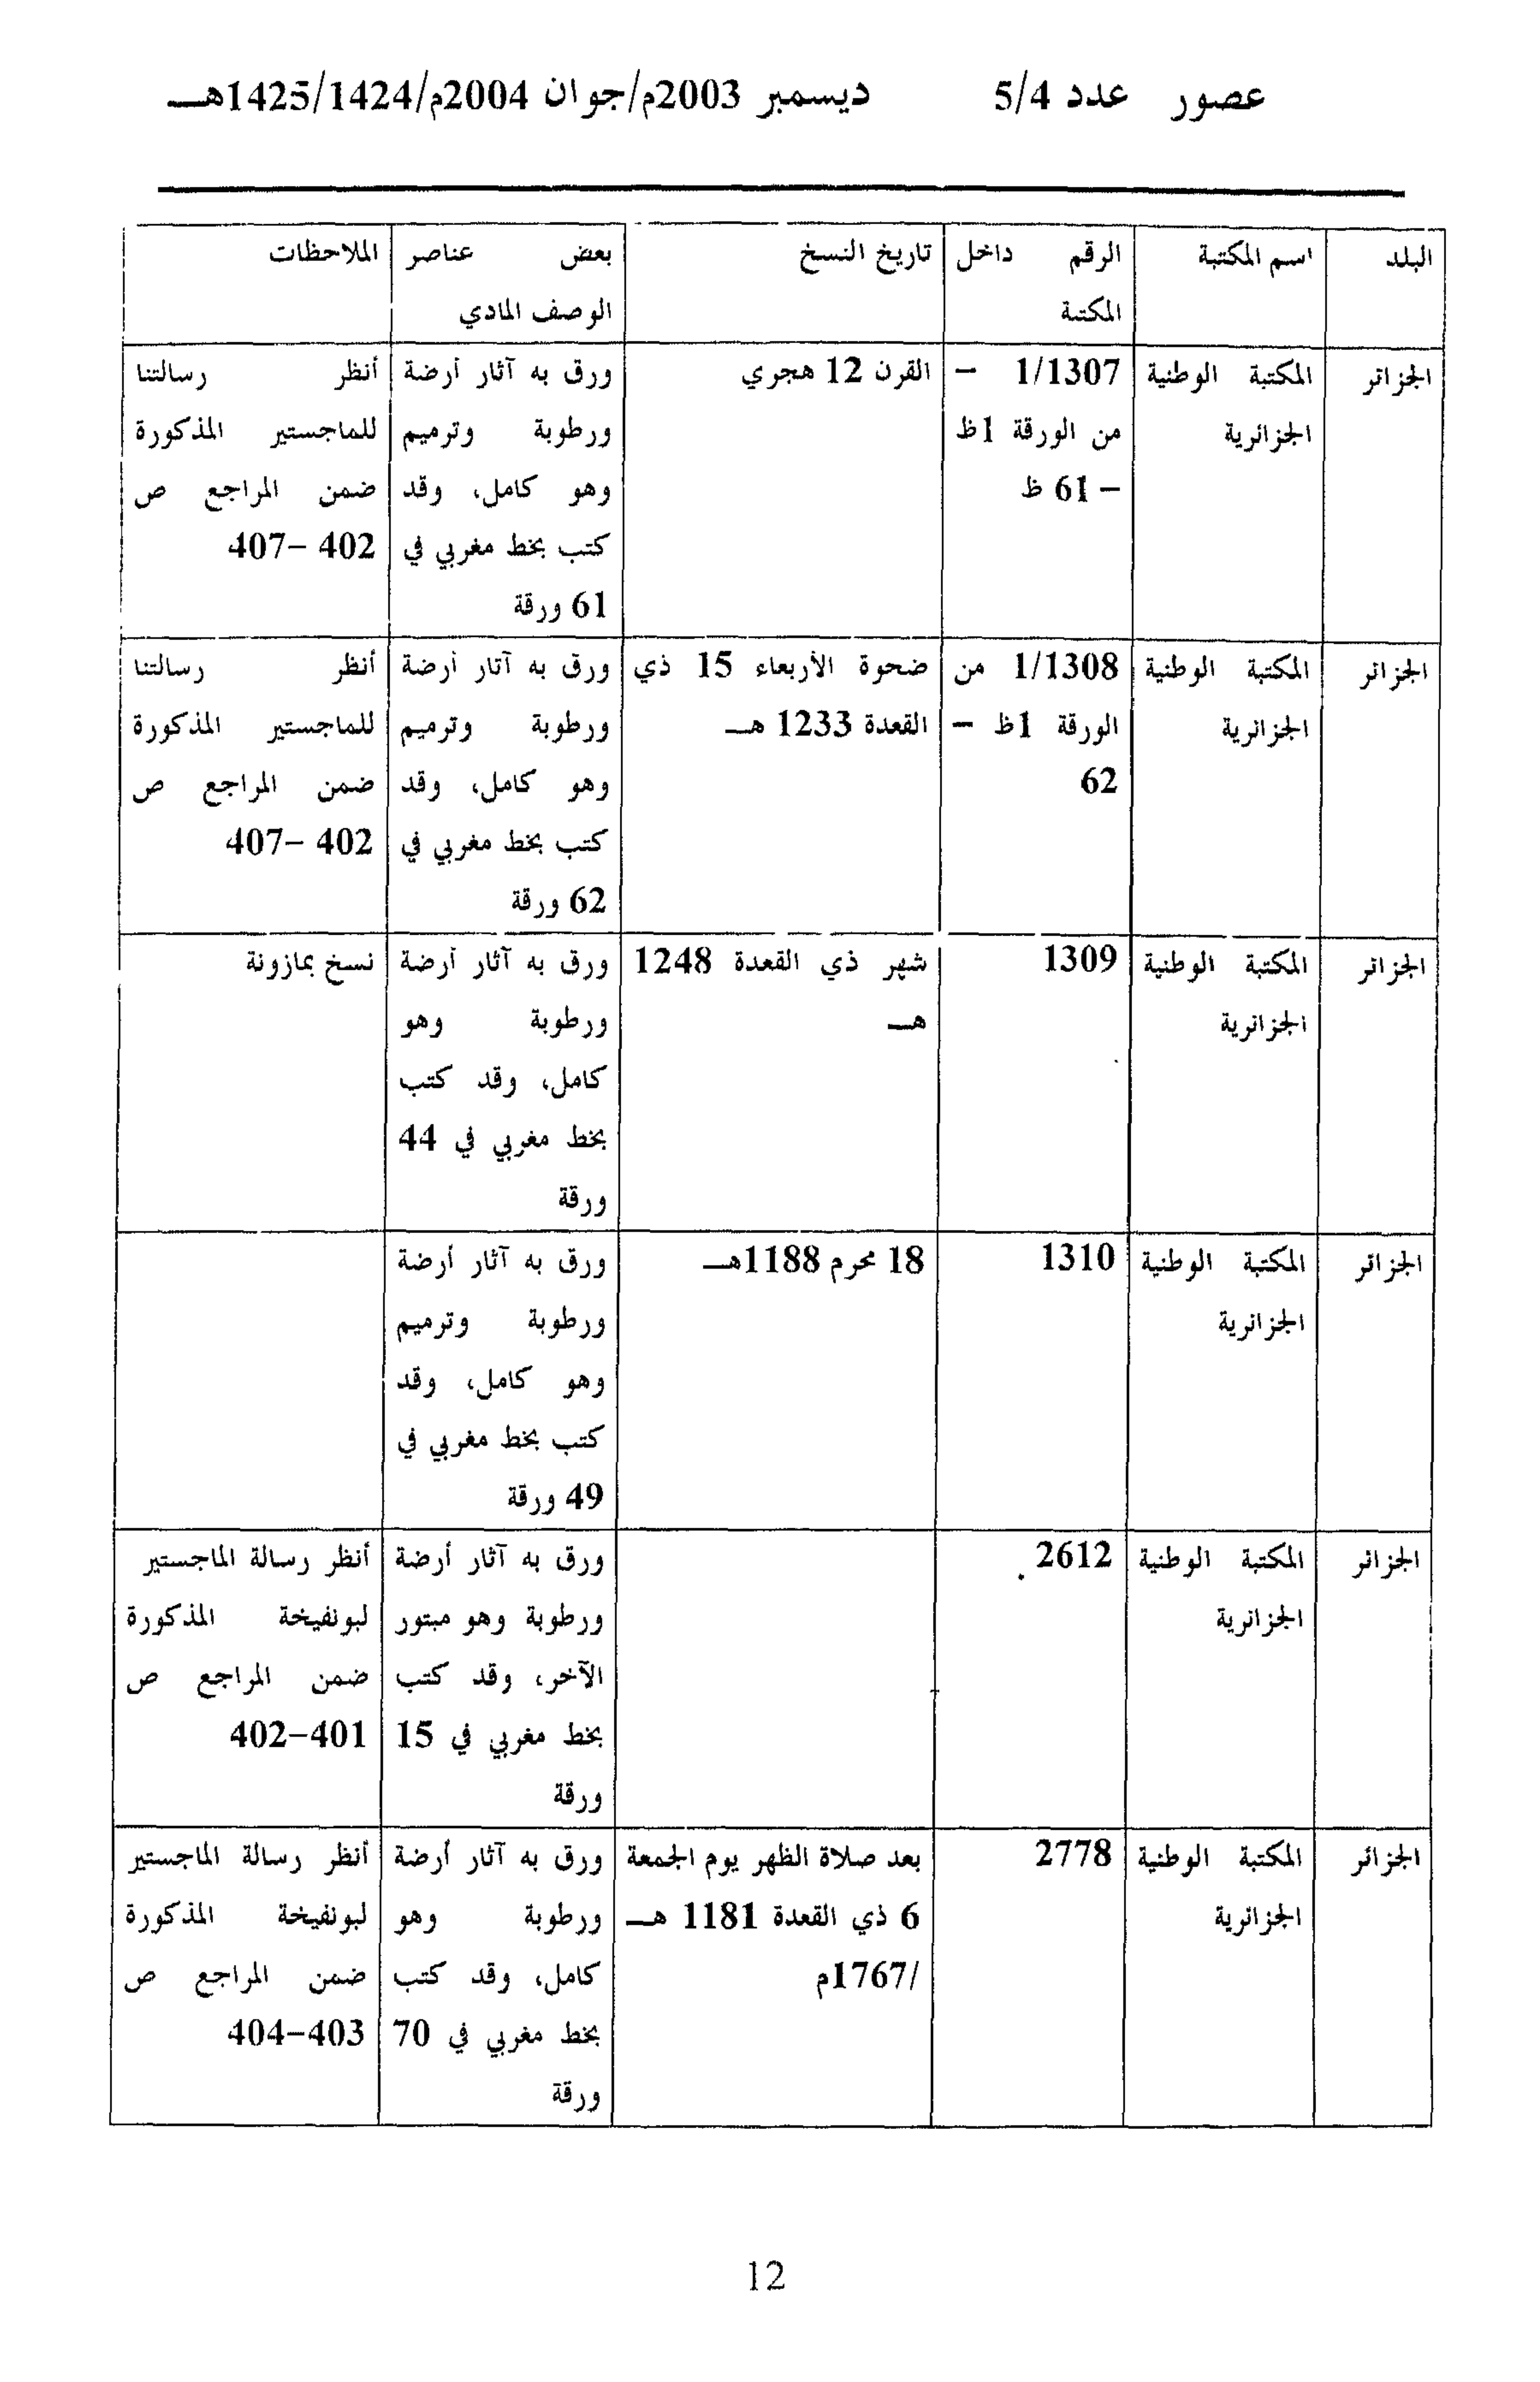 عصور عدد 5/4 ديسمبر 2003م/جوان 2004م/1425/1424هـ
البلد
اسم المكتبة
الرقم داخل
المكتبة
تاريخ النسخ
بعض عناصر
الوصف المادي
الملاحظات
الجزائر
المكتبة الوطنية
الجزائرية
1/1307 –
من الورقة 1ظ
– 61 ظ
القرن 12 هجري
ورق به آثار أرضة
ورطوبة وترميم
وهو كامل، وقد
كتب بخط مغربي في
61 ورقة
أنظر رسالتنا
للماجستير المذكورة
ضمن المراجع ص
402 –407
الجزائر
المكتبة الوطنية
الجزائرية
1/1308 من
الورقة 1ظ –
62
ضحوة الأربعاء 15 ذي
القعدة 1233 هـ
ورق به آثار أرضة
ورطوبة وترميم
وهو كامل، وقد
كتب بخط مغربي في
62 ورقة
أنظر رسالتنا
للماجستير المذكورة
ضمن المراجع ص
402 –407
الجزائر
المكتبة الوطنية
الجزائرية
1309
شهر ذي القعدة 1248
هـ
ورق به آثار أرضة
ورطوبة وهو
كامل، وقد كتب
بخط مغربي في 44
ورقة
نسخ بمازونة
الجزائر
المكتبة الوطنية
الجزائرية
1310
18 محرم 1188هـ
ورق به آثار أرضة
ورطوبة وترميم
وهو كامل، وقد
كتب بخط مغربي في
49 ورقة
الجزائر
المكتبة الوطنية
الجزائرية
2612
ورق به آثار أرضة
ورطوبة وهو مبتور
الآخر، وقد كتب
بخط مغربي في 15
ورقة
أنظر رسالة الماجستير
لبونفيخة المذكورة
ضمن المراجع ص
401–402
الجزائر
المكتبة الوطنية
الجزائرية
2778
بعد صلاة الظهر يوم الجمعة
6 ذي القعدة 1181 هـ
/1767م
ورق به آثار أرضة
ورطوبة وهو
كامل، وقد كتب
بخط مغربي في 70
ورقة
أنظر رسالة الماجستير
لبونفيخة المذكورة
ضمن المراجع ص
403–404
12